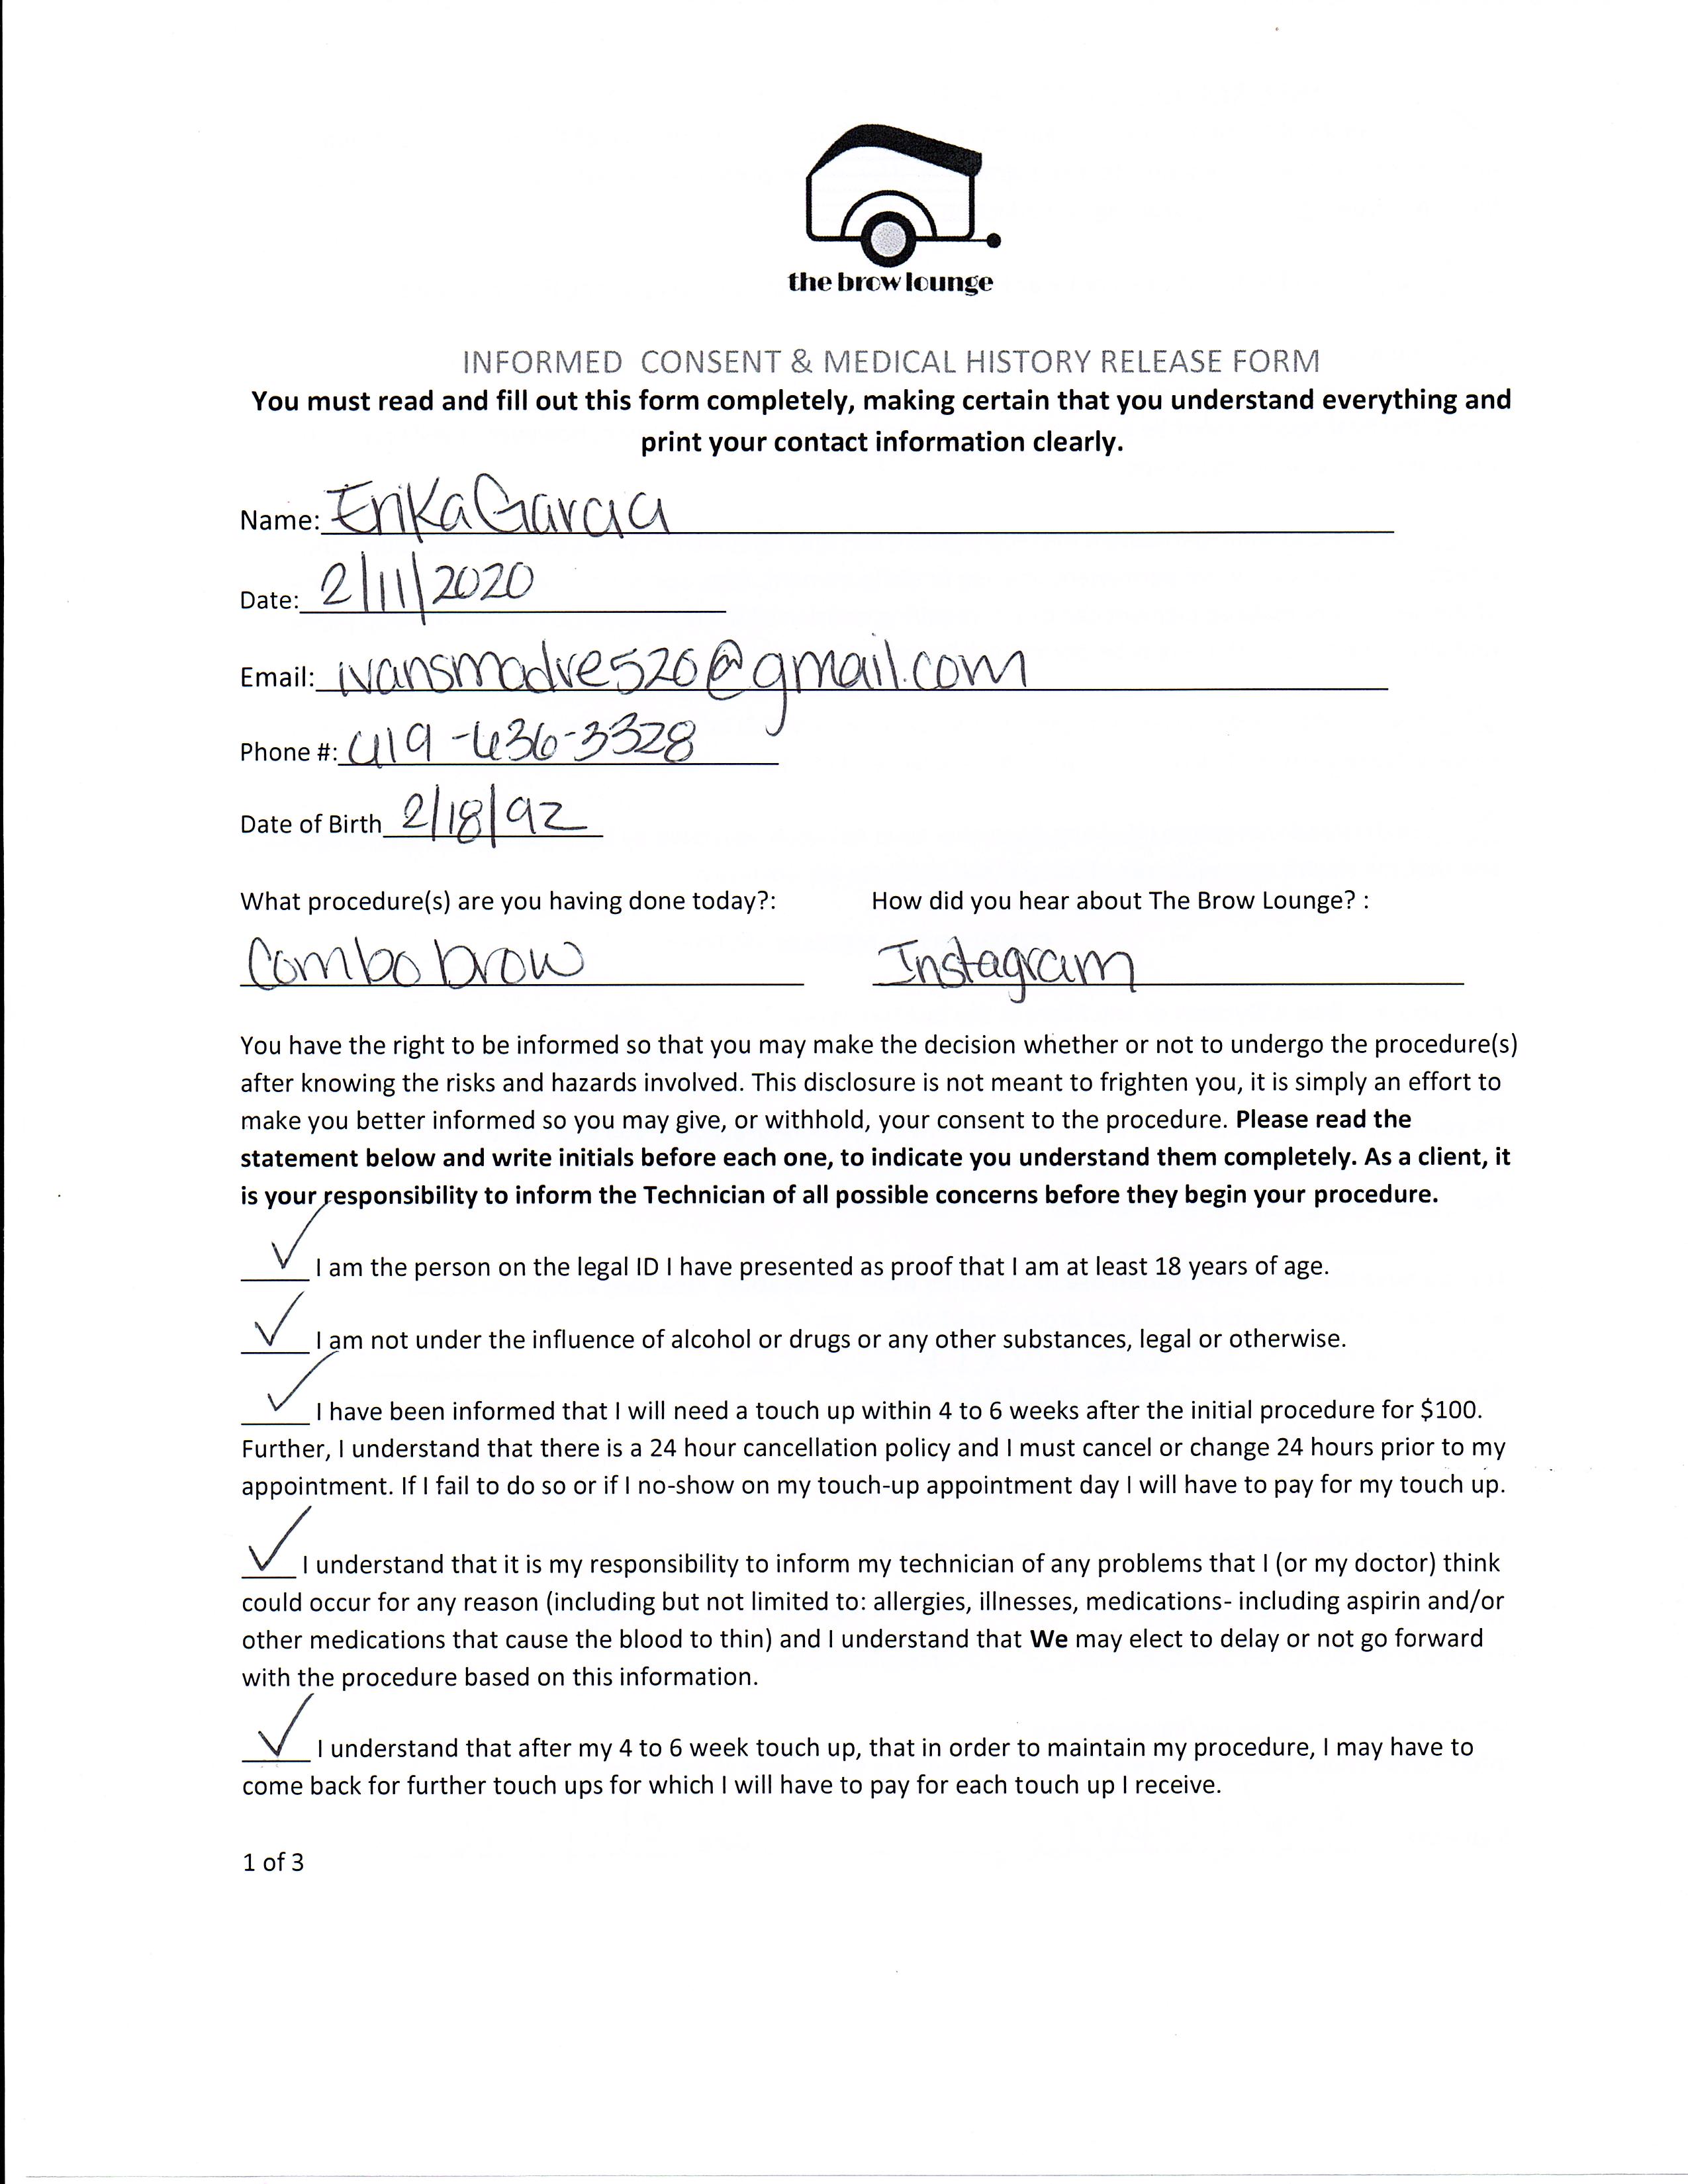 the brow lounge
INFORMED CONSENT & MEDICAL HISTORY RELEASE FORM
You must read and fill out this form completely, making certain that you understand everything and
print your contact information clearly.
Name: Erika Garcia
Date: 2/11/2020
Email: ivansmadre520@gmail.com
Phone #: 419-636-3328
Date of Birth 2/18/92
What procedure(s) are you having done today?: How did you hear about The Brow Lounge? :
Combo brow Instagram
You have the right to be informed so that you may make the decision whether or not to undergo the procedure(s)
after knowing the risks and hazards involved. This disclosure is not meant to frighten you, it is simply an effort to
make you better informed so you may give, or withhold, your consent to the procedure. Please read the
statement below and write initials before each one, to indicate you understand them completely. As a client, it
is your responsibility to inform the Technician of all possible concerns before they begin your procedure.
✓ I am the person on the legal ID I have presented as proof that I am at least 18 years of age.
✓ I am not under the influence of alcohol or drugs or any other substances, legal or otherwise.
✓ I have been informed that I will need a touch up within 4 to 6 weeks after the initial procedure for $100.
Further, I understand that there is a 24 hour cancellation policy and I must cancel or change 24 hours prior to my
appointment. If I fail to do so or if I no-show on my touch-up appointment day I will have to pay for my touch up.
✓ I understand that it is my responsibility to inform my technician of any problems that I (or my doctor) think
could occur for any reason (including but not limited to: allergies, illnesses, medications- including aspirin and/or
other medications that cause the blood to thin) and I understand that We may elect to delay or not go forward
with the procedure based on this information.
✓ I understand that after my 4 to 6 week touch up, that in order to maintain my procedure, I may have to
come back for further touch ups for which I will have to pay for each touch up I receive.
1 of 3